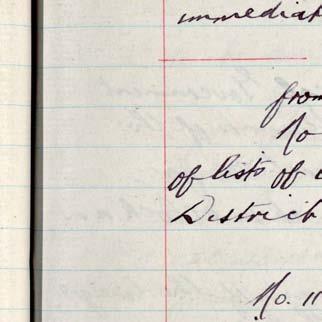 immediat
from
No
of lists of
District
No. 11